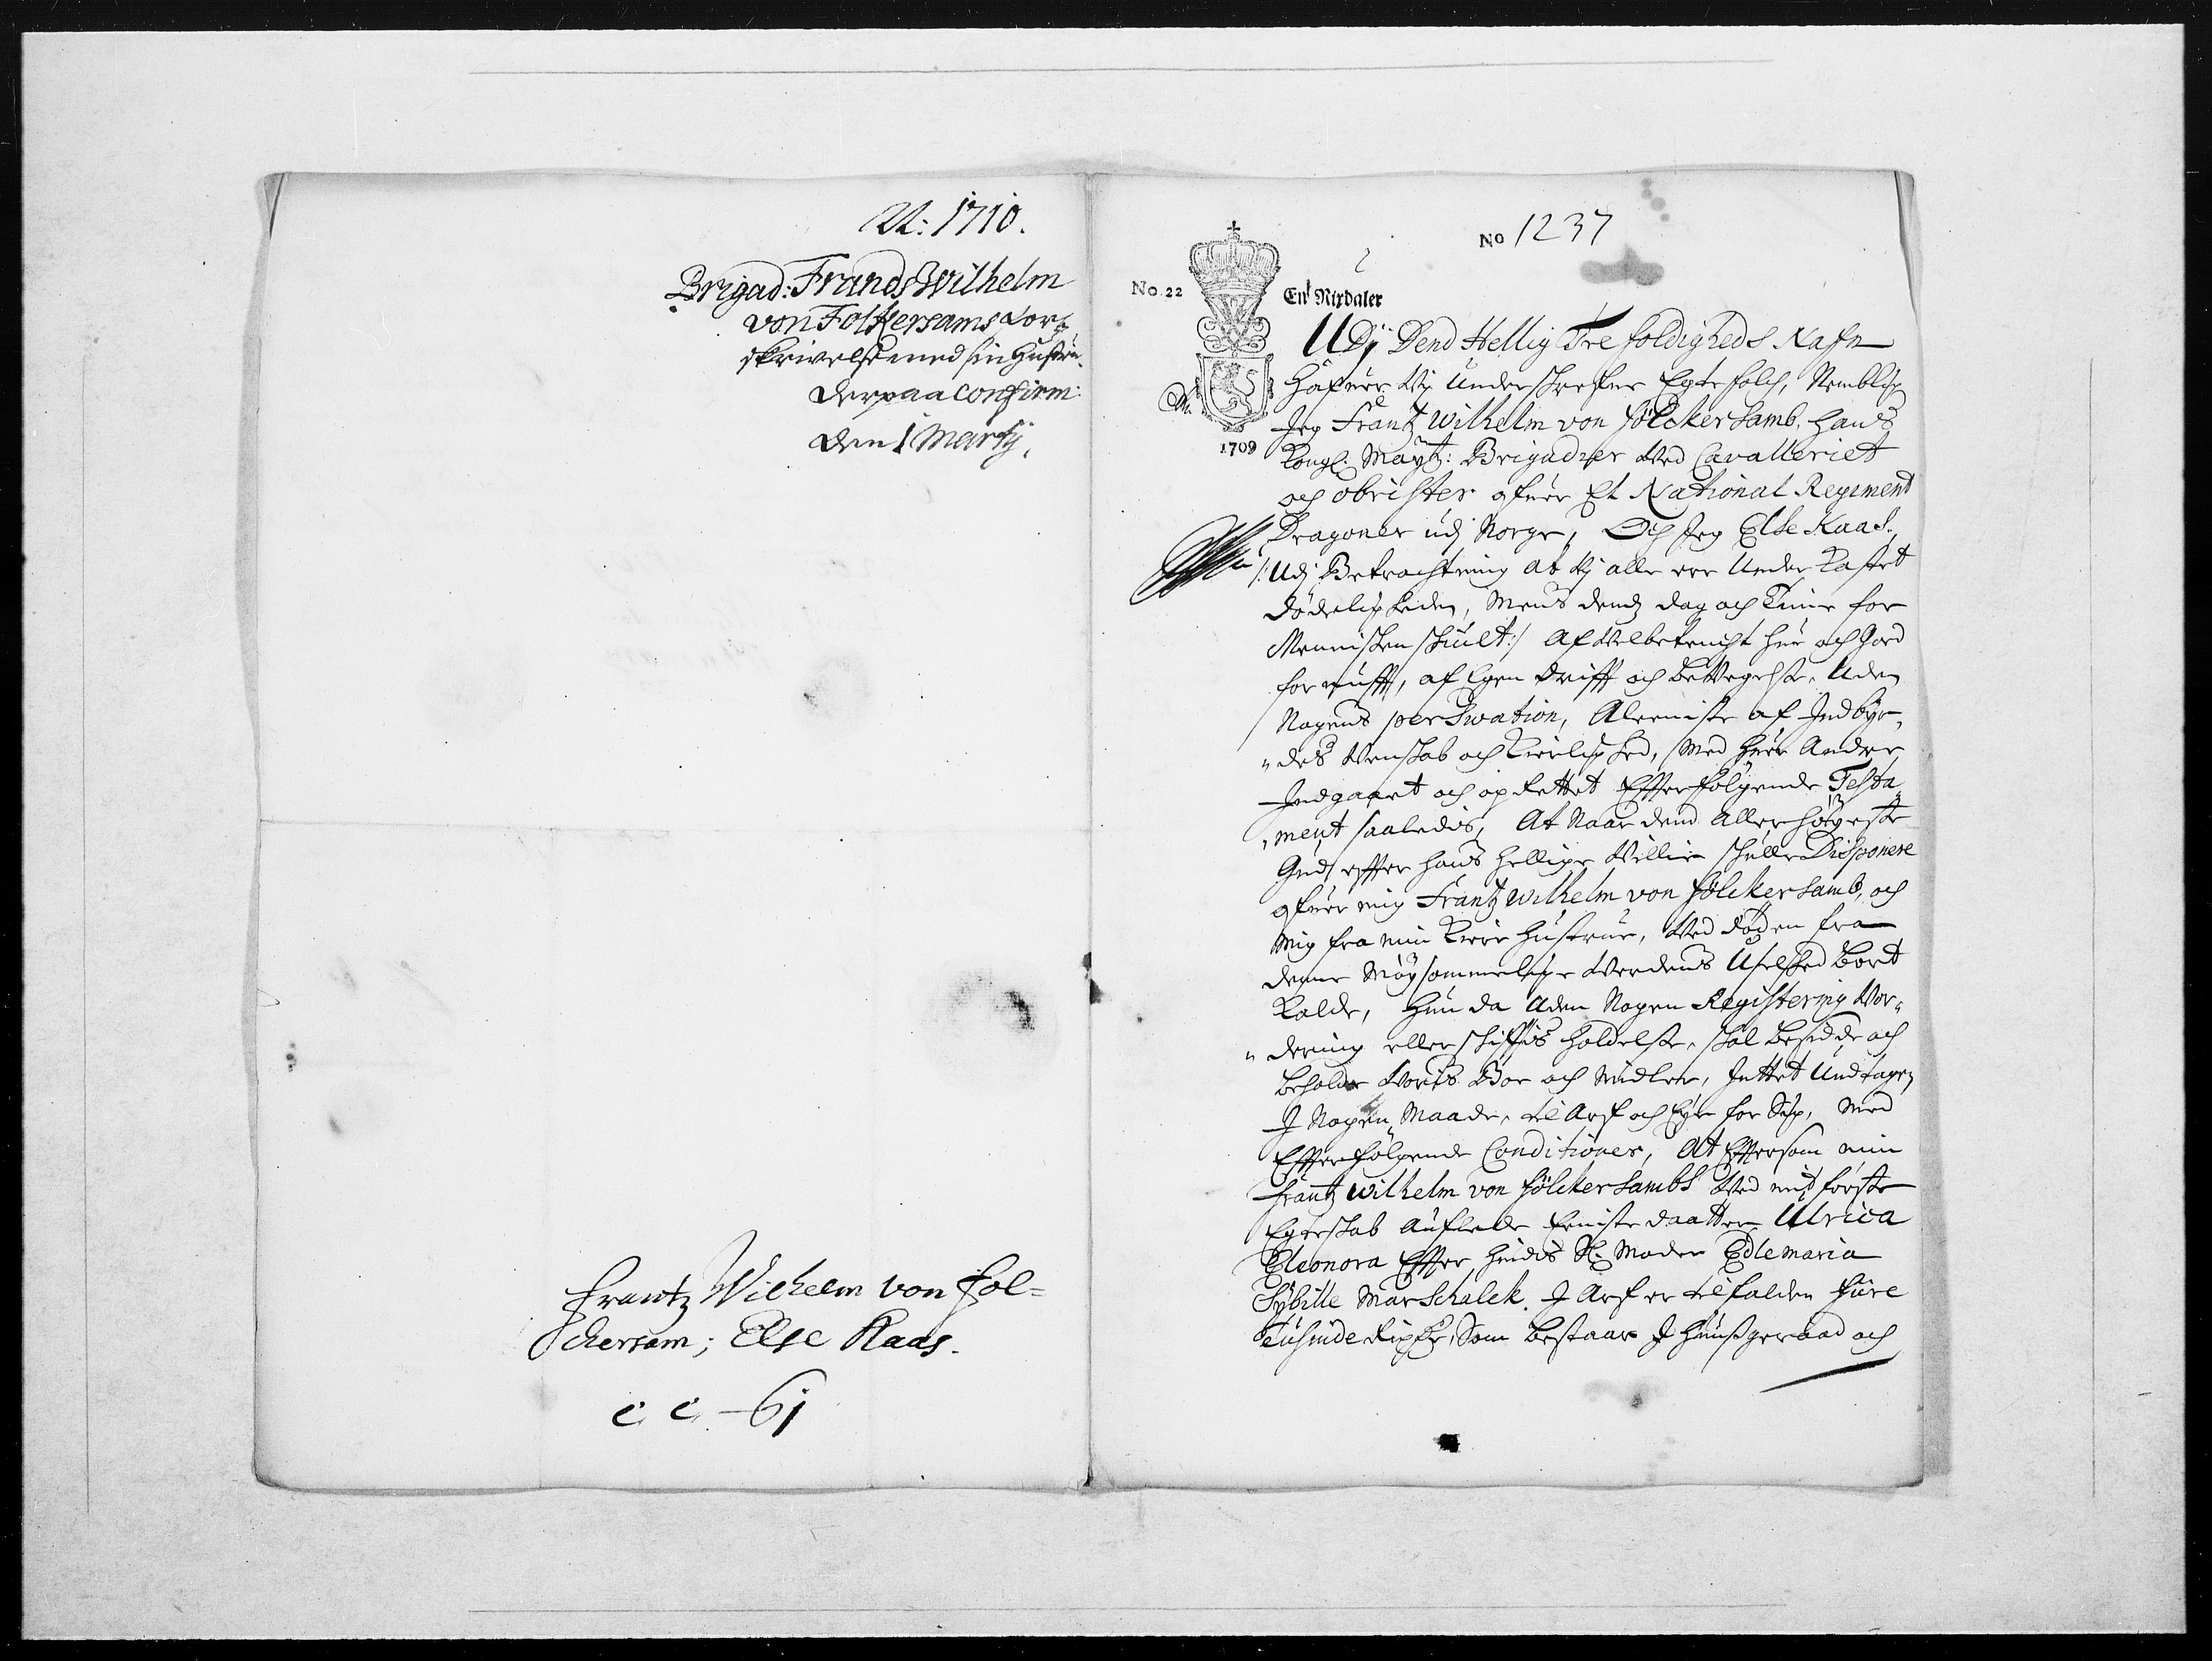 A: 1710.
Brigad: Frands Wilhelm
von Folkersams For-
skrivelse med sin Hustru
derpaa Confirm:
den 1 Martij.
Frantz Wilhelm von Fol=
ckersam; Else Kaas.
c. c. 61
No 1237
No. 22
En Rixdaler
1709
UDj Dend Hellig Trefoldigheds Nafn
Hafver Vy underskrefne Egtefolch, Nemblig
Jeg Frantz Wilhelm von fölckersamb, Hans
Kongl: Maytz: Brigadier Ved Cavalleriet
och obrister ofver Et National Regiment
Dragoner udj Norge, Och Jeg Else Kaas.
/: Udj Betrachtning at Vj alle ere Underkastet
dödeligheden, Mens dend dag och Time for
Mennisken skiult :/ Af Velbetencht Hue och Goed
fornufft, af Egen drifft och bevegelse, Uden
Nogens perswation, Aleeniste af Indbyr„
„des Venskab och Kierlighed, Med Hver Andre
Indgaaet och oprettet Effterfölgende Testa„
„ment saaledis, At Naar dend Allerhöyeste
Gud effter hans hellige Villie skulle Disponere
ofver mig Frantz Wilhelm von fölckersamb, och
Mig fra min Kiere Hustrue, Ved döden fra
denne Möysommelige Verdens Uselhed bort
Kalde, Hun da Uden Nogen Registering Vor„
„dering eller skifftis holdelse, skal besidde och
beholde Voris Boe och Midler, Inttet Undtagen
J Nogen Maade, til Arf och Eye for Sig, Med
Effterfölgende Conditioner, At Efftersom min
Frantz Wilhelm von fölckersambs Ved mit förste
Egteskab Auflede Eeniste daatter Ulrica
Eleonora Effter hindis Sl: Moder Edle Maria
Sybille Marschalck. J Arf er tilfalden fiire
Tusinde Rixdr, Som bestaar J Huusgeraad och